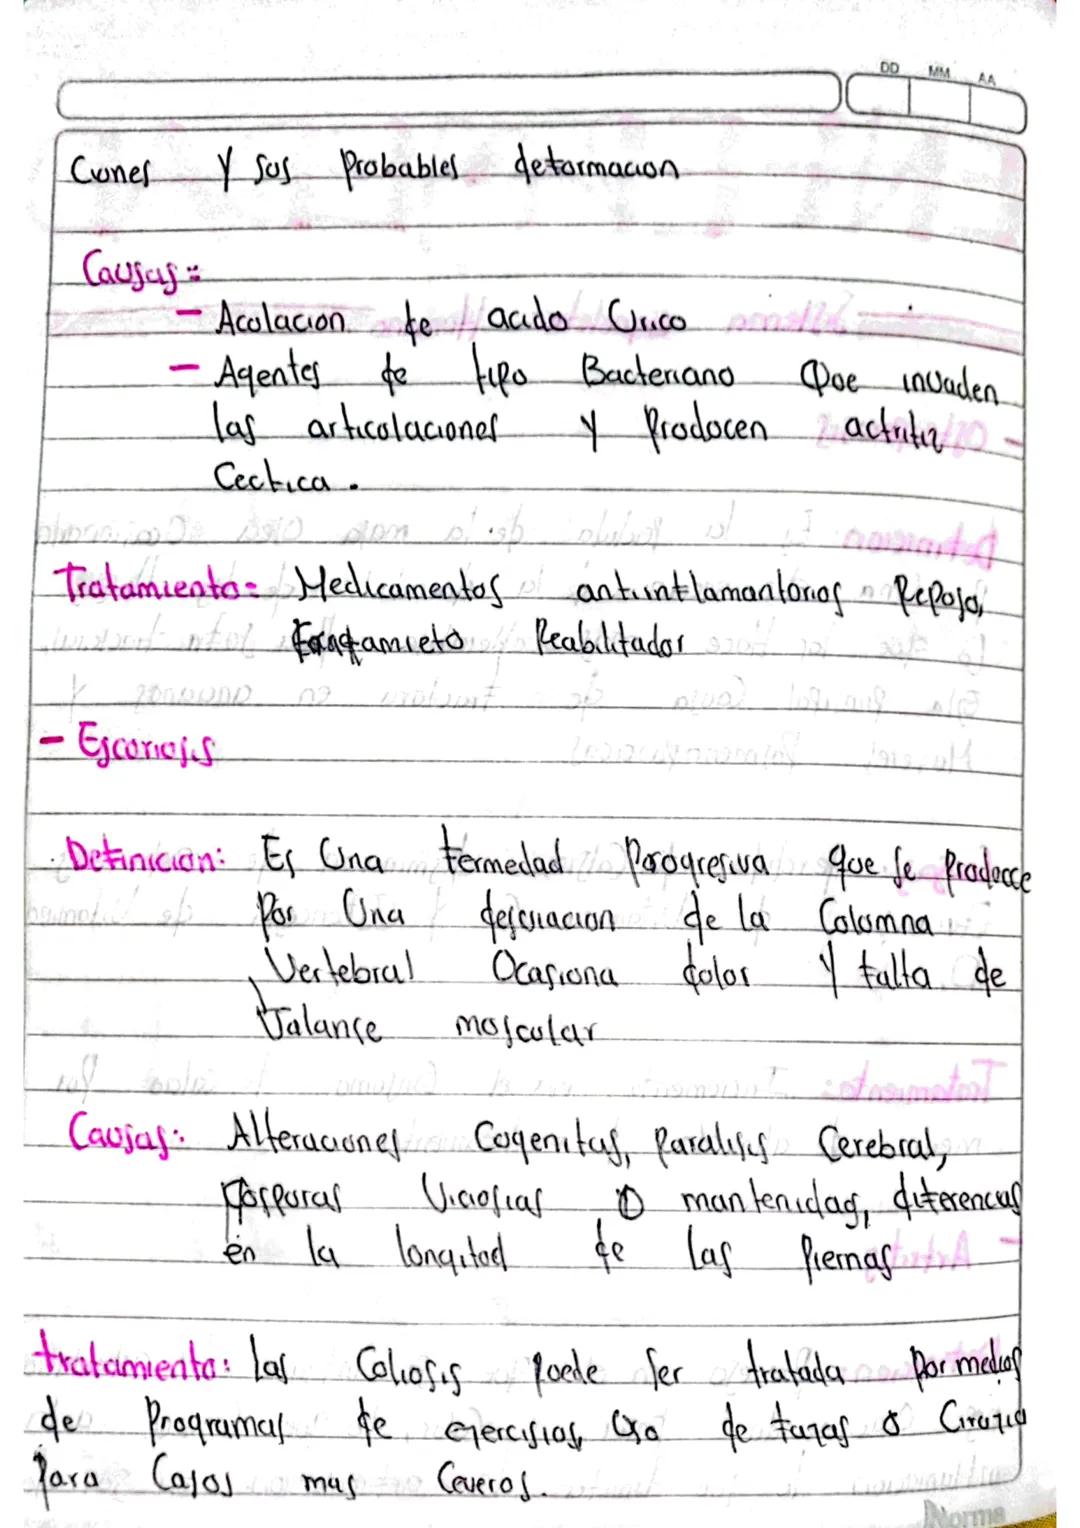 DD MM AA
Ciones Y sus Probables deformacion
Causas:
- Acolacion de acido Urico
- Agentes de tipo Bacteriano Que invaden
las articolaciones y Prodocen actritiz
Cectica.
Tratamiento: Medicamentos antiinflamantorios Reposo,
Reabilitador
- Escoriosis
Definicion: Es Una fermedad Porogresiva que se Prodocce
Por Una desviacion de la Colomna
Vertebral Ocasiona dolor Y falta de
Valanse moscolar
Causas: Alteraciones Cogenitas, Paralisis Cerebral,
Posporas Viciosias O mantenidas, diferencias
en la longitod de las Piernas
tratamiento: las Coliosis Poede Ser tratada Por medios
de Programas de ejercisios, Uso de fajas o Cirugia
Para Casos mas Ceveros.
Norma